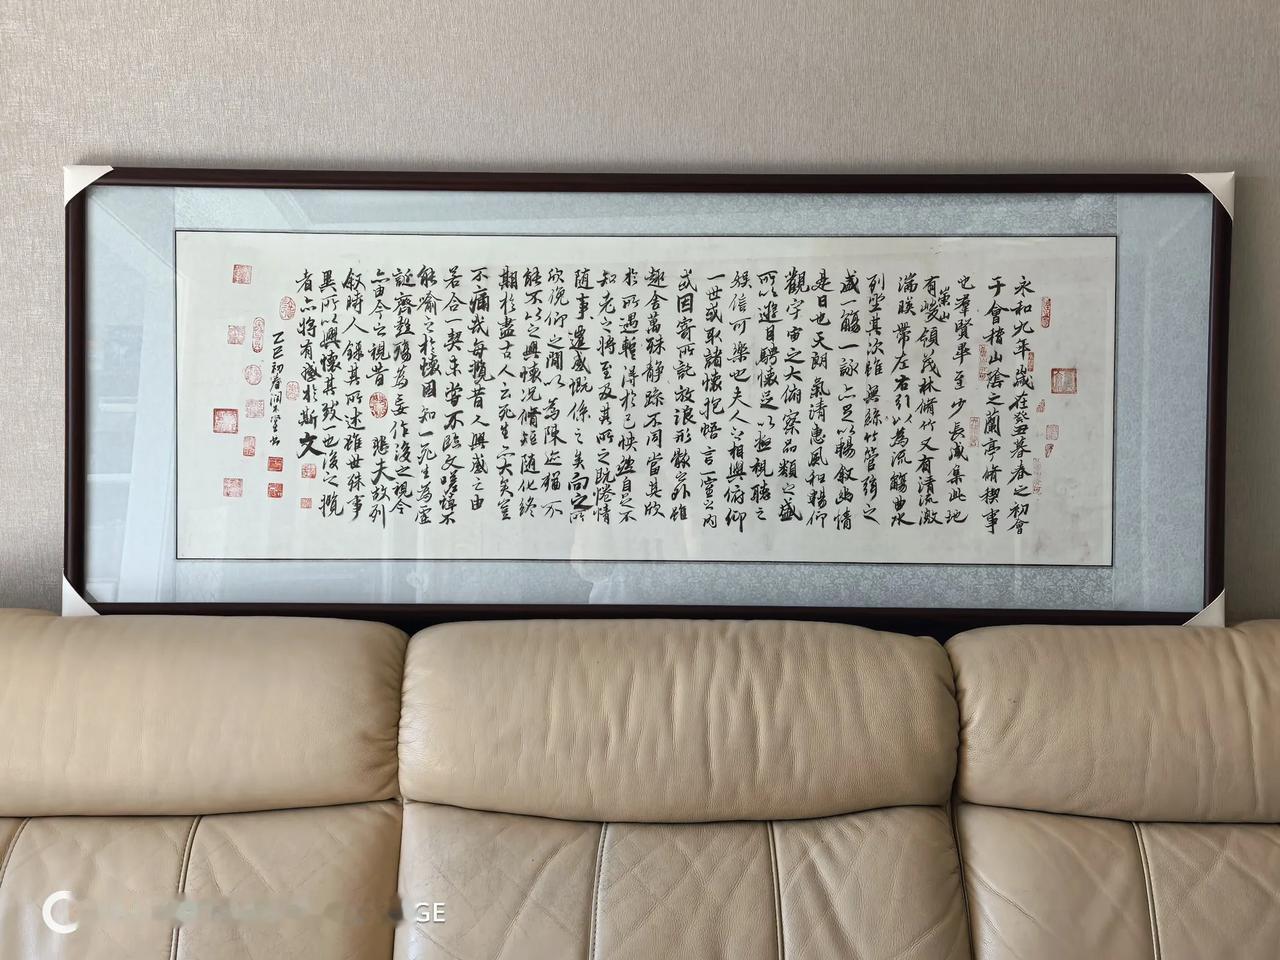 永和九年歲在癸丑暮春之初會
于會稽山陰之蘭亭脩稧事
也羣賢畢至少長咸集此地
有崇山峻領茂林脩竹又有清流激
湍暎帶左右引以為流觴曲水
列坐其次雖無絲竹管弦之
盛一觴一詠亦足以暢敘幽情
是日也天朗氣清惠風和暢仰
觀宇宙之大俯察品類之盛
所以遊目騁懷足以極視聽之
娛信可樂也夫人之相與俯仰
一世或取諸懷抱悟言一室之內
或因寄所託放浪形骸之外雖
趣舍萬殊靜躁不同當其欣
於所遇暫得於己快然自足不
知老之將至及其所之既惓情
隨事遷感慨係之矣向之所
欣俛仰之間以為陳迹猶不
能不以之興懷況脩短隨化終
期於盡古人云死生亦大矣豈
不痛哉每攬昔人興感之由
若合一契未嘗不臨文嗟悼不
能喻之於懷固知一死生為虛
誕齊彭殤為妄作後之視今
亦由今之視昔悲夫故列
敘時人錄其所述雖世殊事
異所以興懷其致一也後之攬
者亦將有感於斯文
乙巳初春
GE